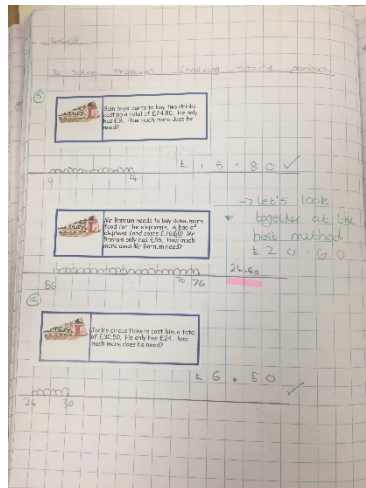 To solve problems involving missing numbers
Sam Sam wants to buy two drinks
cost as a total of £24.80. He only
has £9. How much more does he
need?
£ 15.80 ✓
19
Mr Barnum needs to buy some more
food for the elephants. A bag of
elephant food costs £76.60. Mr
Barnum only has £56. How much
more does Mr Barnum need?
→ let's look
* together at the
best method.
£ 20.60
56
76
76
24.60
Jack's circus tickets cost him a total
of £30.50. He only has £24. How
much more does he need?
£ 6.50
✓
30